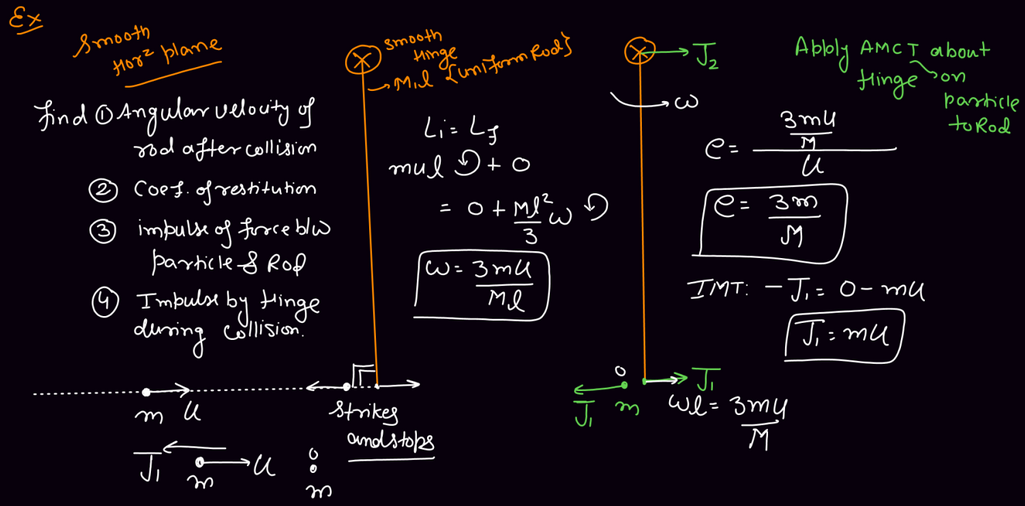 Ex
Smooth
Hor² plane
find ① Angular velocity of
rod after collision
② Coef. of restitution
③ impulse of force b/w
particle & Rod
④ Impulse by Hinge
during collision.
m u
J₁ u
m
0
m
smooth
Hinge
M,l {uniform Rod}
Li = Lf
mul + 0
= 0 + Ml²/3 ω
ω = 3mu/Ml
strikes
and stops
J₂
ω
0
J₁ m
J₁
ωl = 3mu/M
Apply AMCT about
Hinge on
particle
to Rod
e = (3mu/M)/u
e = 3m/M
IMT: -J₁ = 0 - mu
J₁ = mu